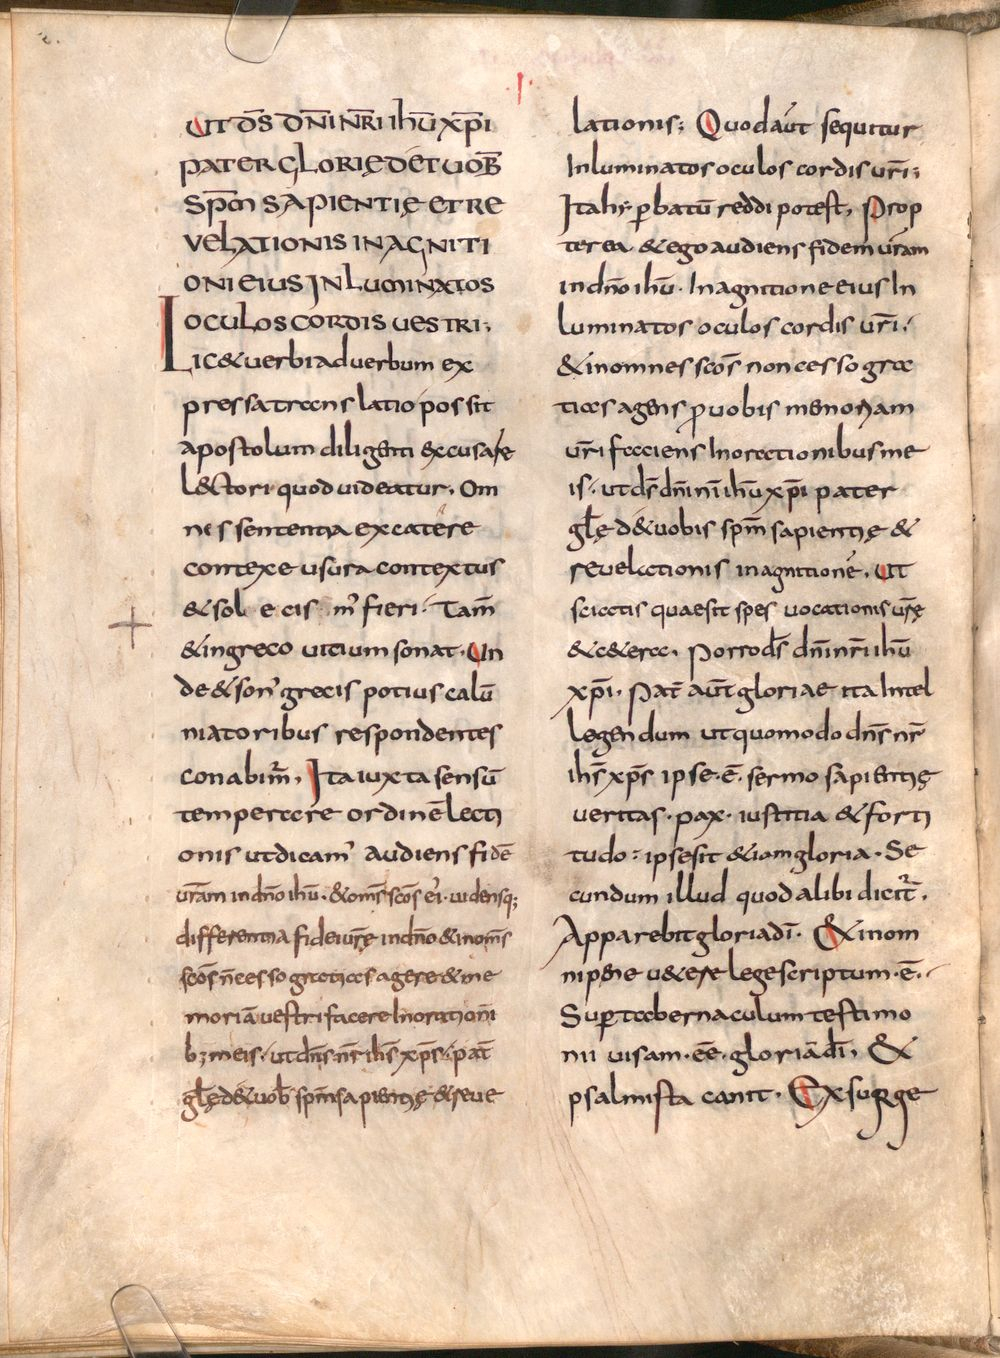 ·I·
UT DS̄ DN̄I NR̄I IHŪ XP̄I
PATER GLORIĘ DET UOB̄
SPM̄ SAPIENTIĘ ET RE
VELATIONIS IN AGNITI
ONI EIUS INLUMINATOS
OCULOS CORDIS UESTRI;
Lic& uerbi ad uerbum ex
pressa translatio possit
apostolum diligenti excusare
l&tori quod uideatur. Om
nes sententia ex catere
contexe usura contextus
& sol e cis m̉ fieri· Tam̄
& in greco uitium sonat· Un
de & son̉ grecis potius calū
niatoribus respondentes
conabim̉. Ita iuxta sensū
temperare ordinē lecti
onis ut dicam̉ audiens fidē
ur̄am in dn̄o ihū· & om̄s scōs ei· uidensq;
differentia fidei ur̄ę in dn̄o & in om̄s
scōs n̄ cesso gratias agere & me
moriā uestri facere In oration̄i
b; meis· ut dn̄s nr̄ ihs̄ xp̄s· pat̄
gl̄ę d& uob̄ spm̄ sapientię & reue
lationis; Quod aūt sequitur
Inluminatos oculos cordis ur̄i;
Ita hi; p̱batū reddi potest. Prop
terea & ego audiens fidem ur̄am
in dn̄o ihū· In agnitione eius In
luminatos oculos cordis ur̄i·
& in omnes scōs non cesso gra
tias agens ꝓ uobis memoriam
ur̄i faciens In orationibus me
is· ut ds̄ dn̄i nr̄i ihū xp̄i pater
gl̄ę d& uobis spm̄ sapientię &
reuelationis in agnitione. Ut
sciatis quae sit spes uocationis ur̄ę
& c&era. Porro ds̄ dn̄i nr̄i ihū
xp̄i. Pat̄ aūt gloriae ita Intel
legendum ut quomodo dn̄s nr̄
ihs̄ xp̄s ipse·ē· sermo sapientię
ueritas· pax· iustitia & forti
tudo: ipse sit & iam gloria· Se
cundum illud quod alibi dicit̉.
Apparebit gloria dī· & in om
ni pene u&ere lege scriptum·ē·
Super tabernaculum testimo
nii uisam·eē· gloriā dī. &
psalmista canit· Exsurge